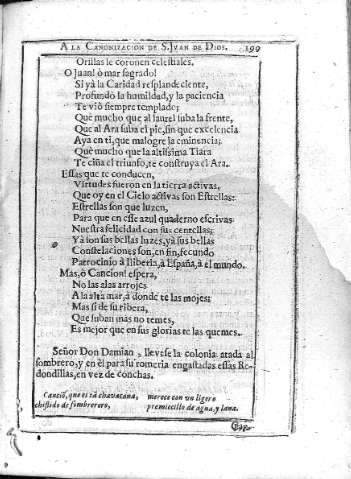 A LA CANONIZACION DE S. JVAN DE DIOS. 199
Orillas le coronen celestiales.
O Juan! ò mar sagrado!
Si yà la Caridad resplandeciente,
Profundò la humildad, y la paciencia
Te viò siempre templado;
Què mucho que al laurel suba la frente,
Que al Ara suba el pie, sin que excelencia
Aya en ti, que malogre la eminencia;
Què mucho que la altissima Tiara
Te ciña el triunfo, te construya el Ara.
Essas que te conducen,
Virtudes fueron en la tierra activas,
Que oy en el Cielo activas son Estrellas:
Estrellas son que luzen,
Para que en esse azul quaderno escrivas
Nuestra felicidad con sus centellas;
Yà son sus bellas luzes, yà sus bellas
Constelaciones son, en fin, fecundo
Patrocinio à Iliberia, à España, à el mundo.
Mas, ò Cancion! espera,
No las alas arrojes
A la alta mar, à donde te las mojes;
Mas si de su ribera,
Que suban mas no temes,
Es mejor que en sus glorias te las quemes.
Señor Don Damian, llevese la colonia atada al
sombrero, y en èl para su romeria engastadas essas Re-
dondillas, en vez de conchas.
Canciõ, que es tã chavacana,
chistido de sombrerero,
merece con un ligero
premiecillo de agua, y lana.